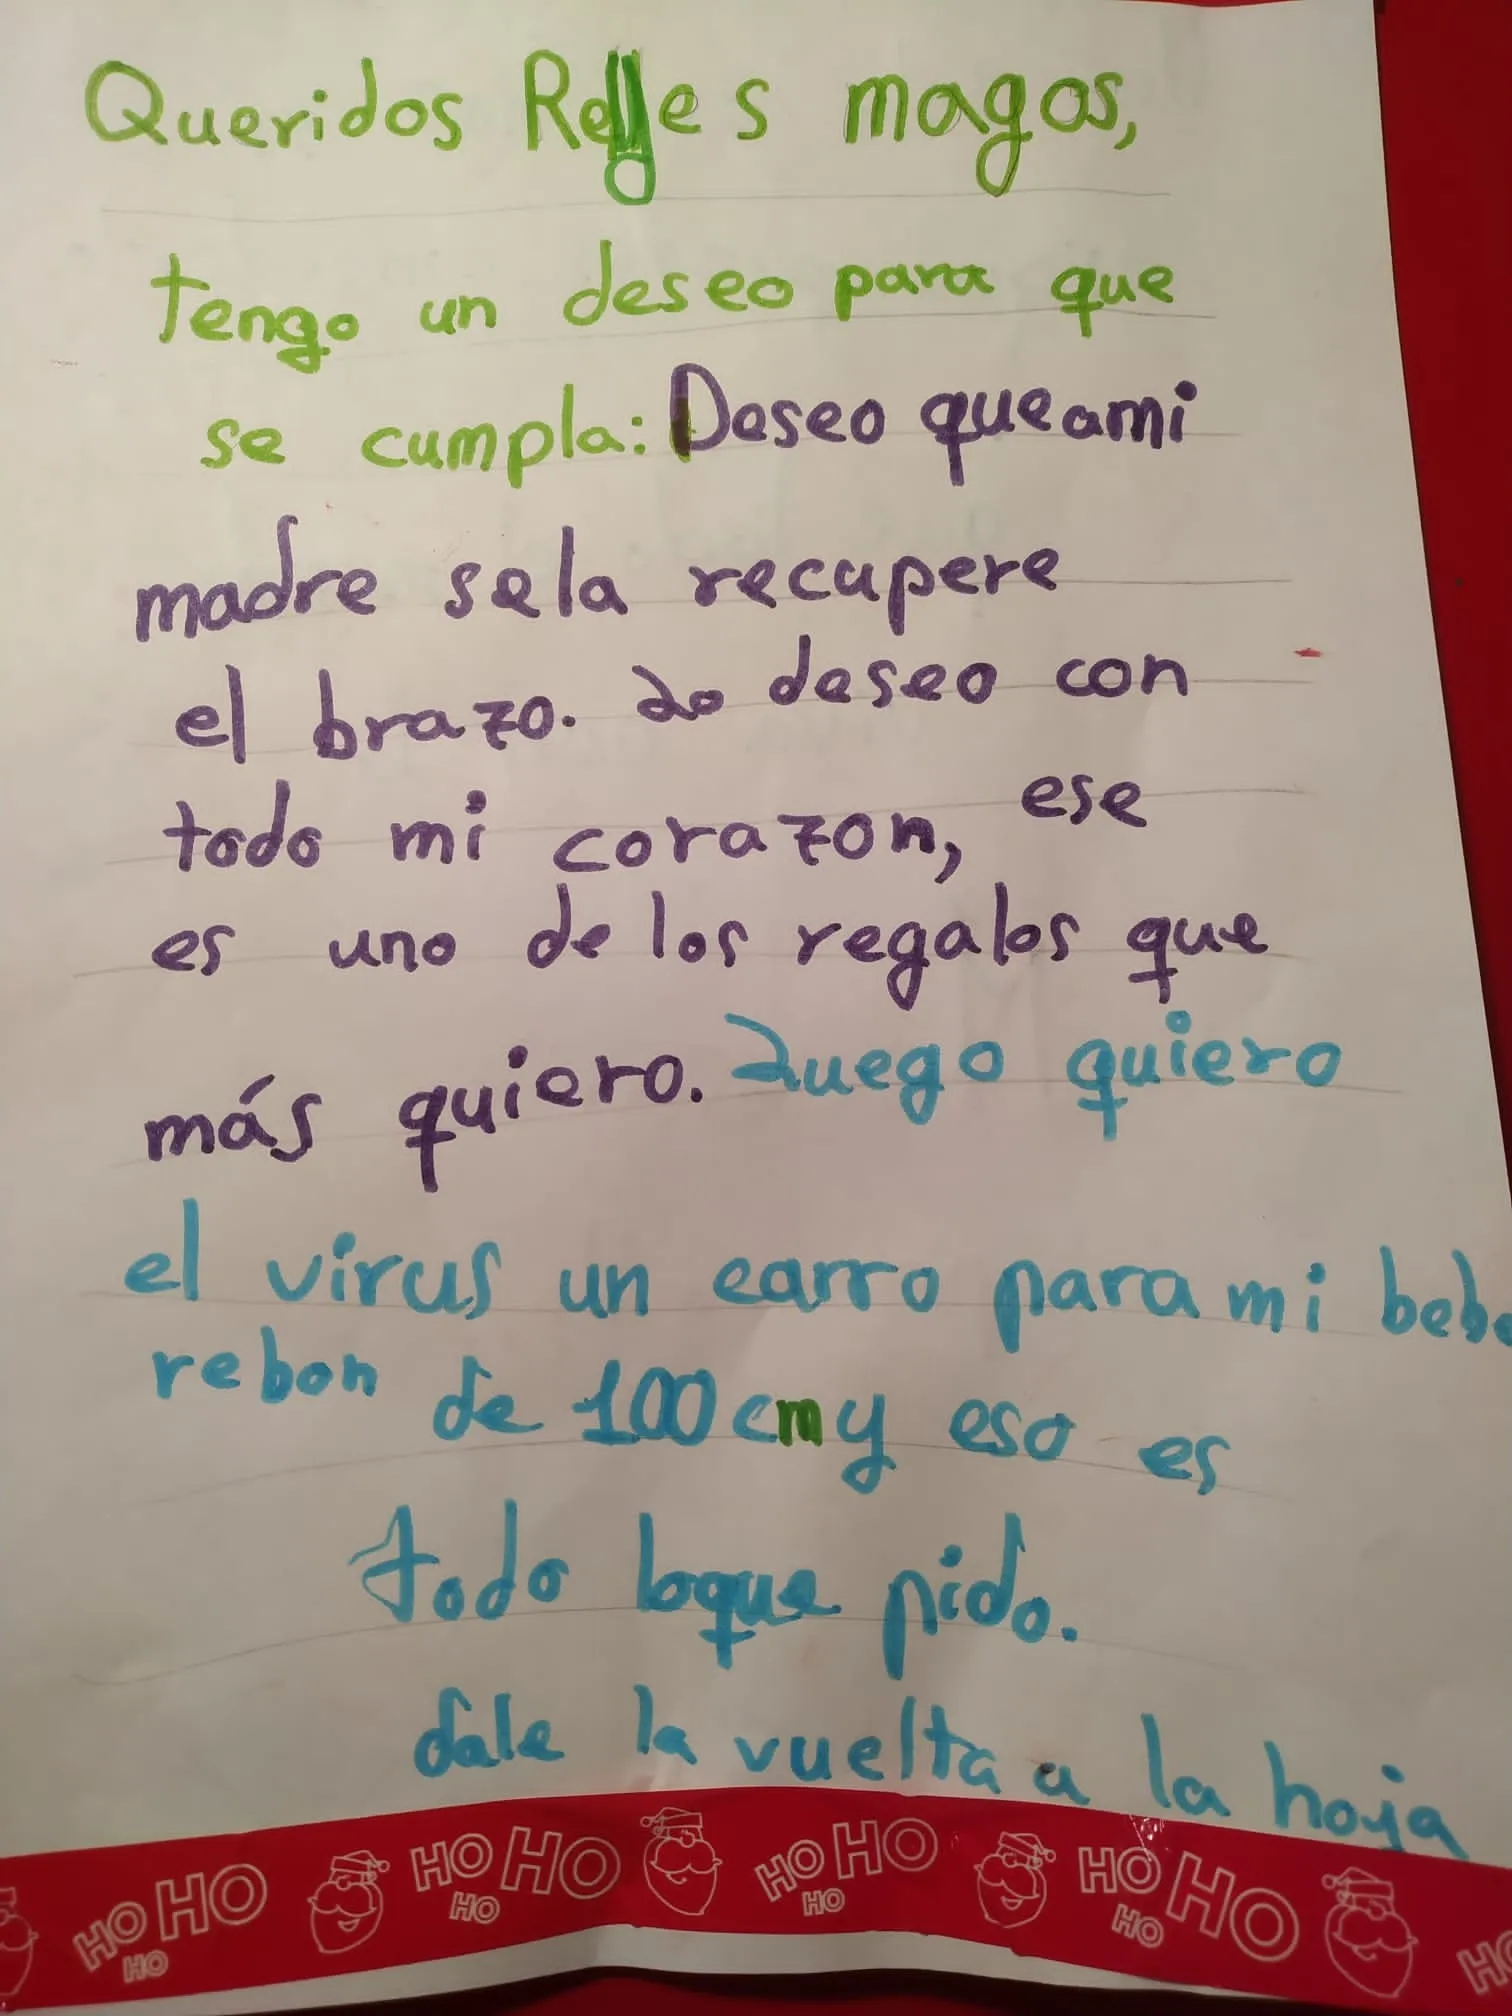 Queridos Reyes magos,
tengo un deseo para que
se cumpla: Deseo que ami
madre sela recupere
el brazo. Lo deseo con
todo mi corazon, ese
es uno de los regalos que
más quiero. Luego quiero
el virus un carro para mi bebe
rebon de 100 cm y eso es
todo loque pido.
dale la vuelta a la hoja
HO HO HO HO HO HO HO HO HO HO HO HO HO